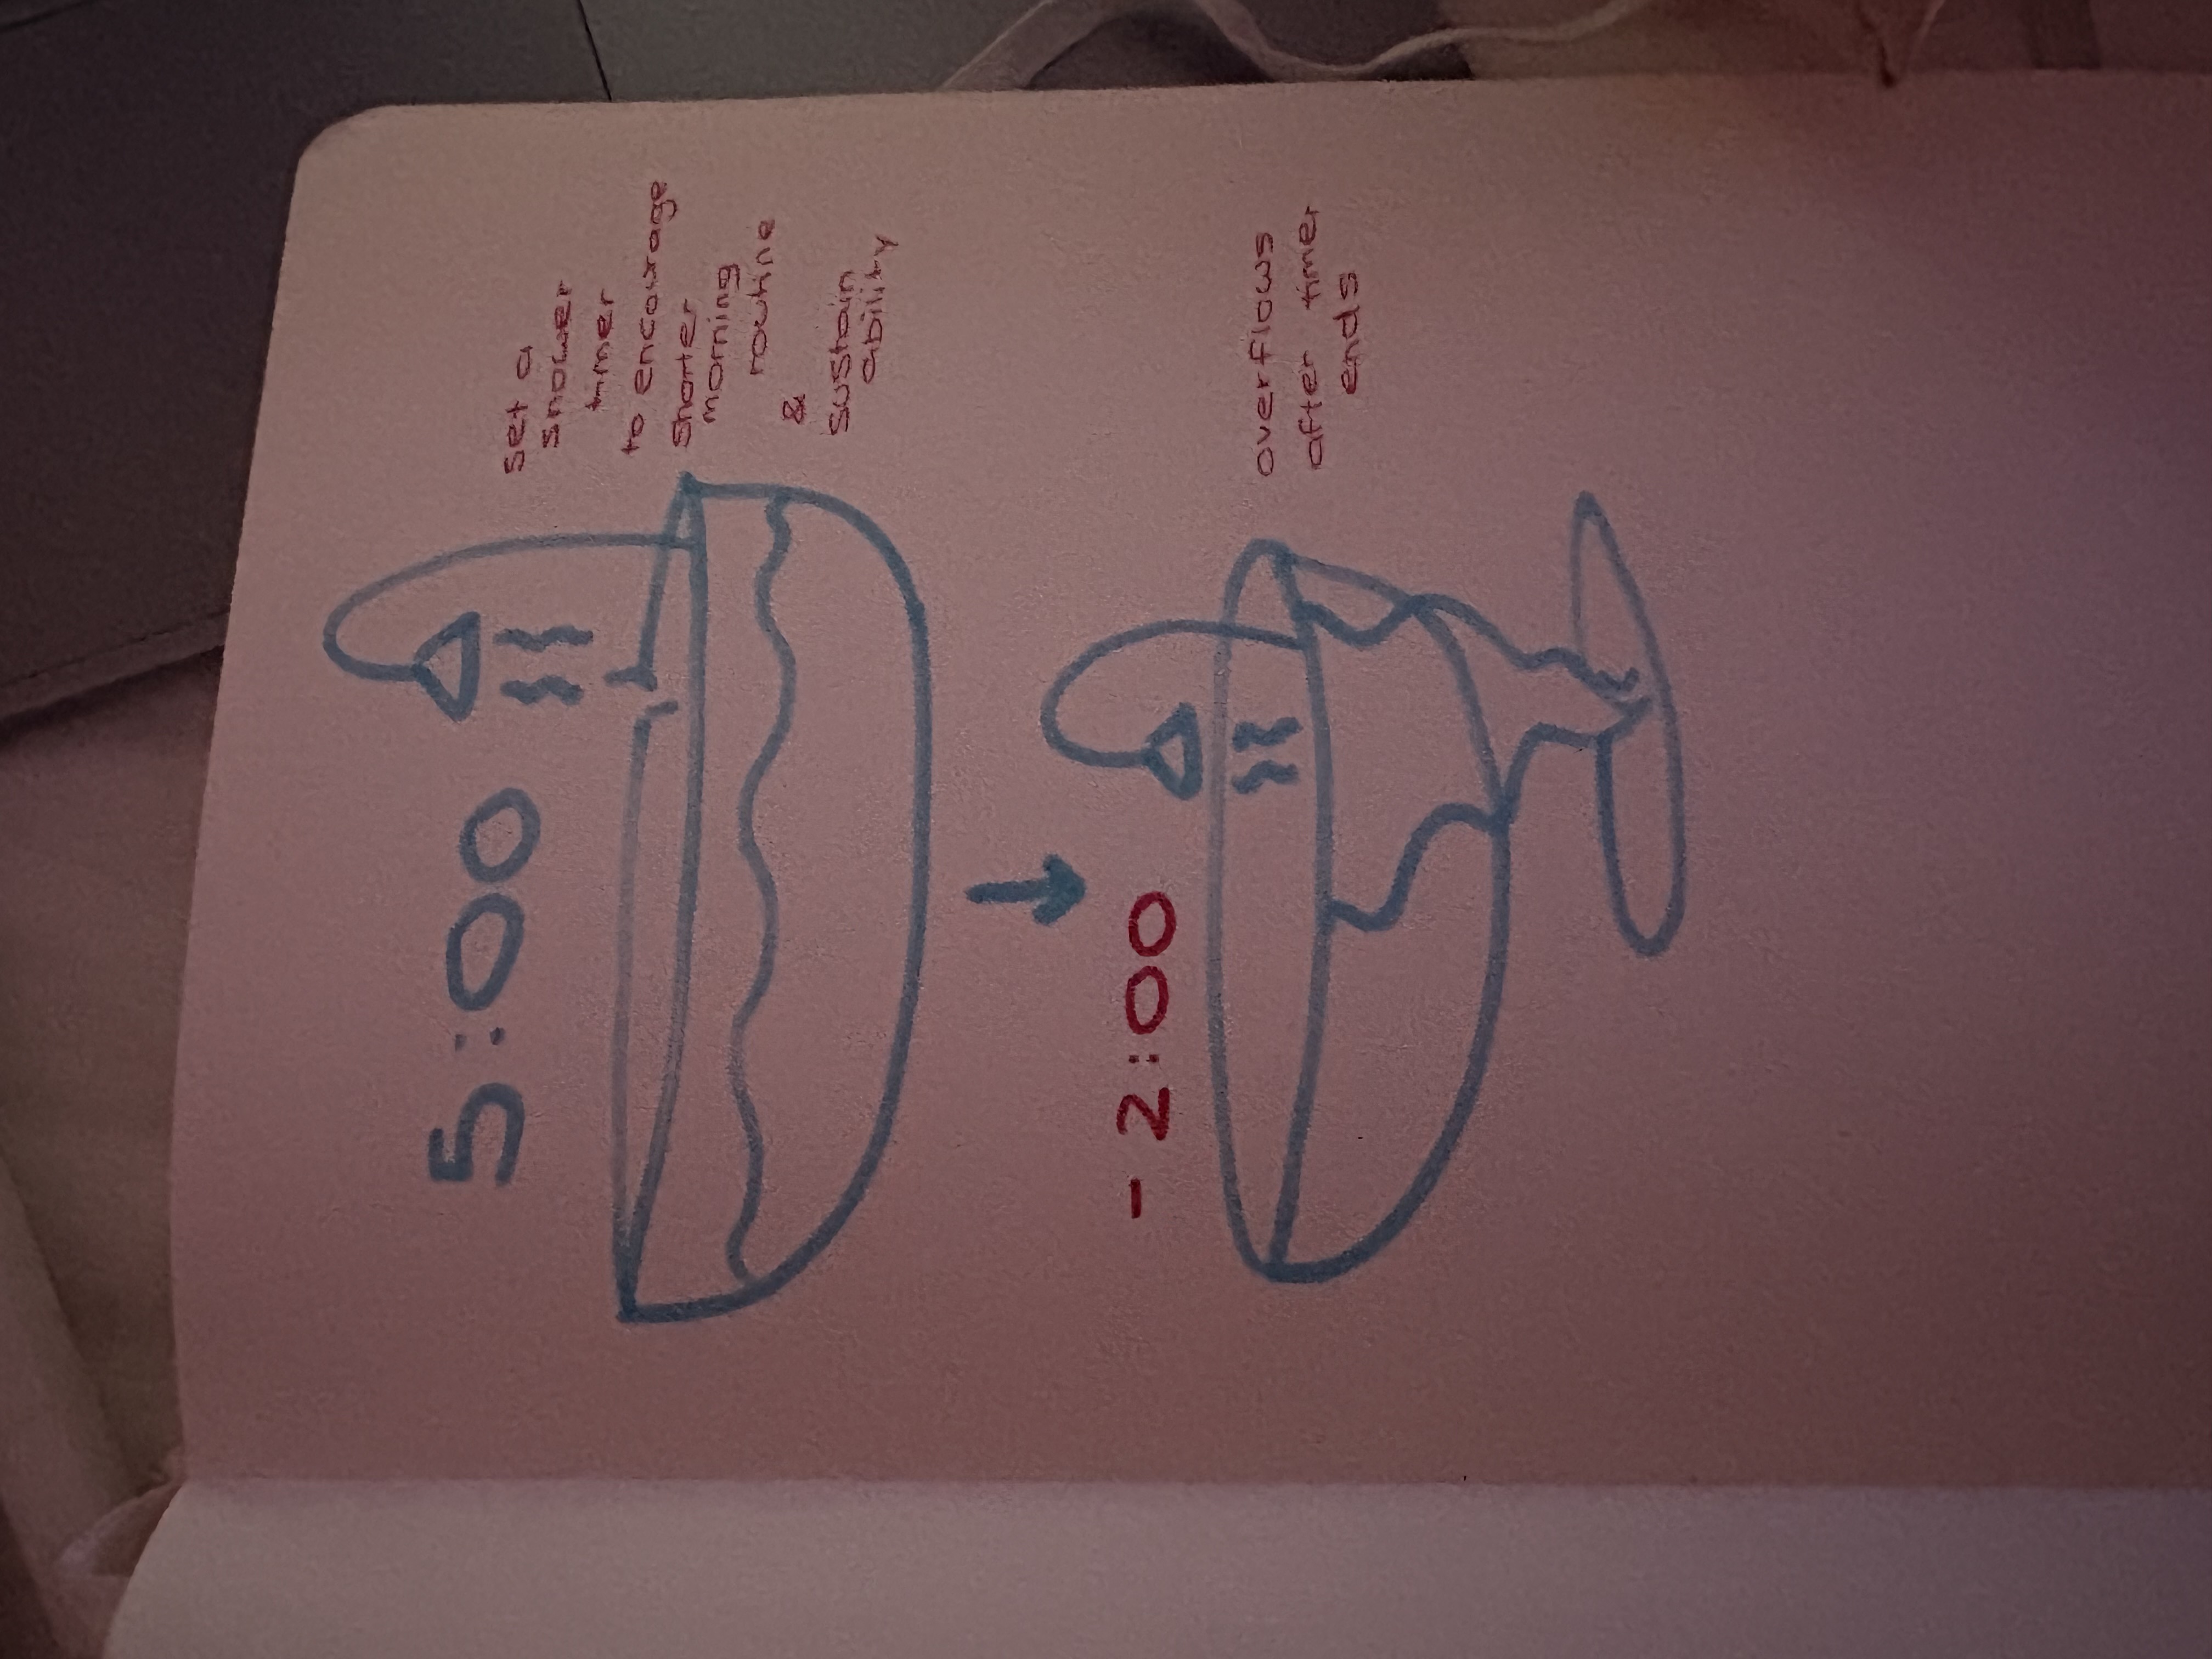 5:00
set a
shower
timer
to encourage
shorter
morning
routine
&
sustain
ability
- 2:00
overflows
after timer
ends